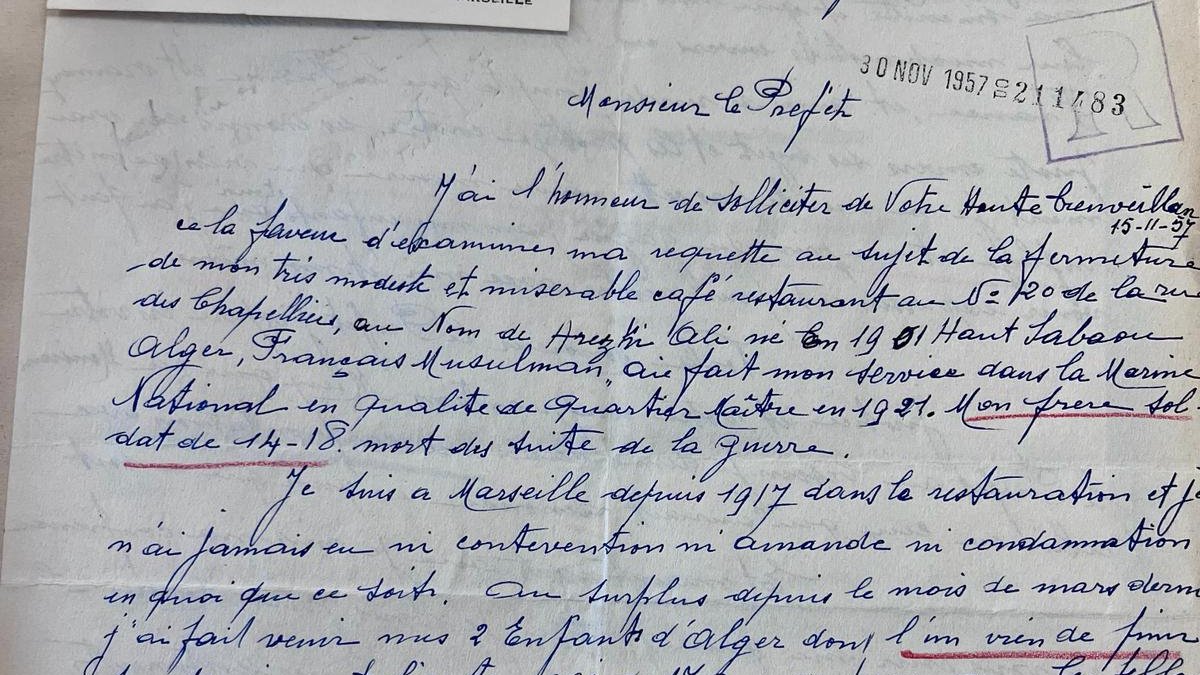 MARSEILLE
30 NOV 1957 211483
Monsieur le Préfet
J'ai l'honneur de solliciter de Votre Haute bienveillan
15-11-57
ce la faveur d'examiner ma requette au sujet de la fermeture
de mon tris modeste et miserable café restaurant au No 20 de la rue
des Chapelliers, au Nom de Arezki Ali né en 1901 Haut Sabaou
Alger, Français Musulman, ai fait mon service dans la Marine
National en qualite de Quartier Maître en 1921. Mon frere sol
dat de 14-18. mort des suite de la guerre.
Je suis a Marseille depuis 1917 dans la restauration et je
n'ai jamais eu ni contevention ni amande ni condamnation
en quoi que ce soit. Au surplus depuis le mois de mars dern
j'ai fait venir mes 2 Enfants d'Alger dont l'un vien de finir